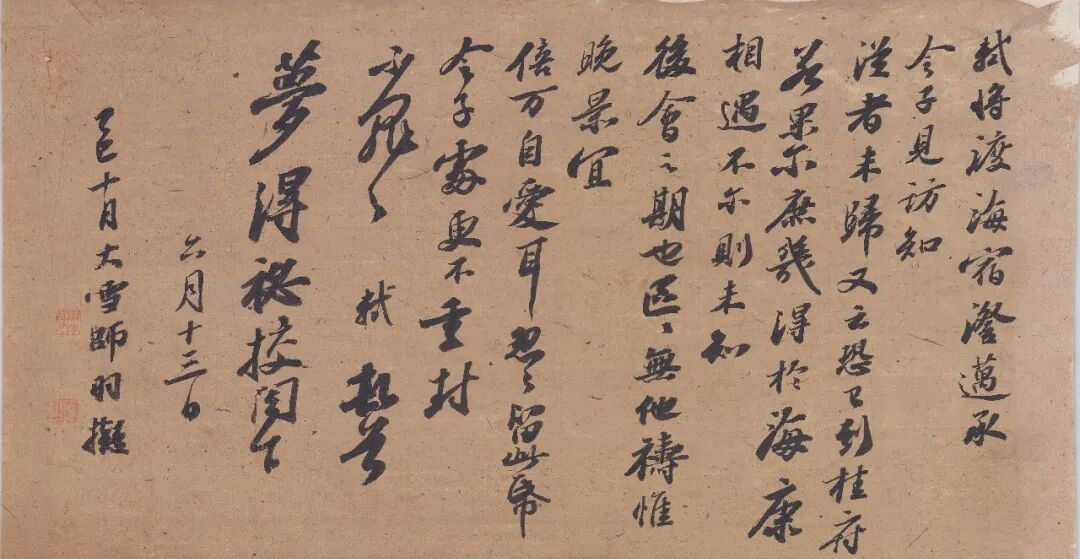 軾將渡海宿澄邁承
令子見訪知
從者未歸又云恐已到桂府
若果尔庶幾得於海康
相遇不尔則未知
後會之期也區〻無他禱惟
晚景宜
倍万自愛耳忽〻留此帋
令子處更不重封
不罪〻軾頓首
夢得祕校閤下
六月十三日
乙巳十月大雪師羽擬